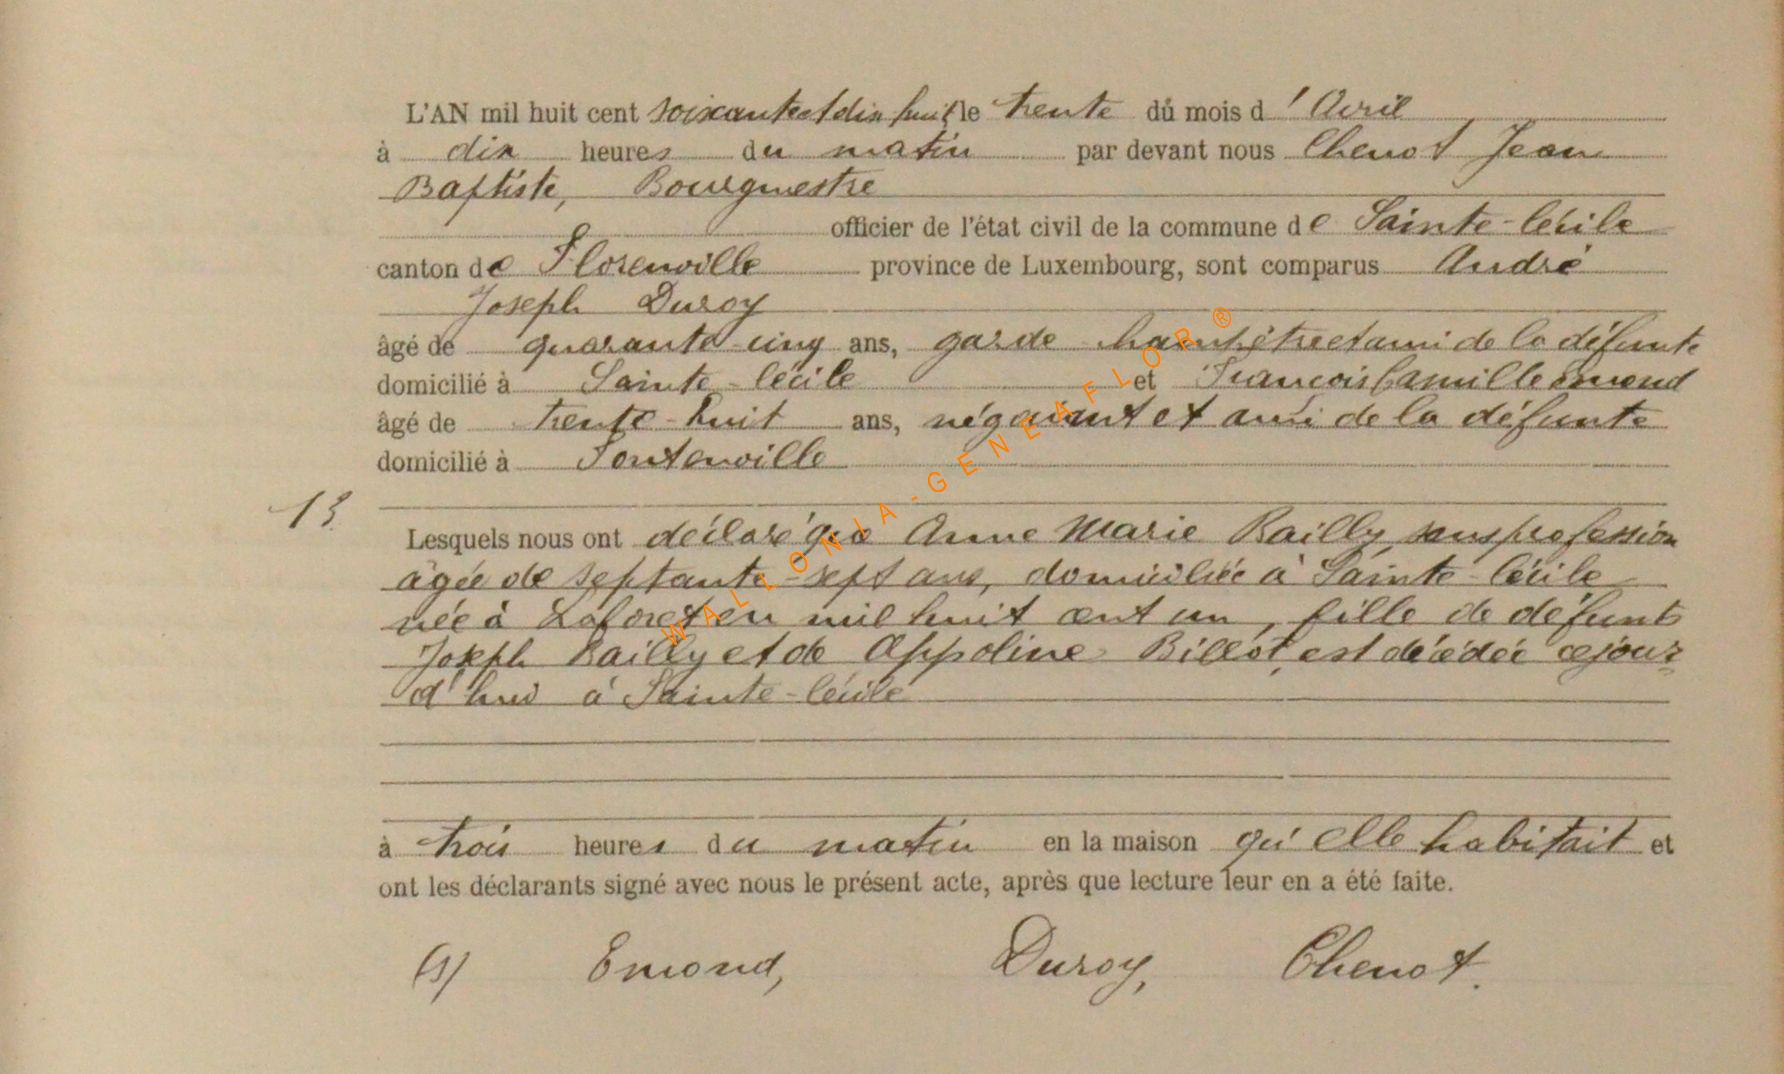 L'AN mil huit cent soixante et dix huit le trente du mois d'Avril
à dix heures du matin par devant nous Chenot Jean
Baptiste, Bourgmestre
officier de l'état civil de la commune de Sainte-Cécile
canton de Florenville province de Luxembourg, sont comparus André
Joseph Duroy
âgé de quarante-cinq ans, garde champêtre et ami de la défunte
domicilié à Sainte-Cécile et François Camille Emond
âgé de trente-huit ans, négociant et ami de la défunte
domicilié à Fontenoille
13.
Lesquels nous ont déclaré que Anne Marie Bailly, sans profession
âgée de septante-sept ans, domiciliée à Sainte-Cécile
née à Laforet en mil huit cent un, fille de défunts
Joseph Bailly et de Appoline Billot, est décédée cejour-
d'hui à Sainte-Cécile
à trois heures du matin en la maison qu'elle habitait et
ont les déclarants signé avec nous le présent acte, après que lecture leur en a été faite.
(s) Emond, Duroy, Chenot.
WALLONIA-GENEAFLOR®